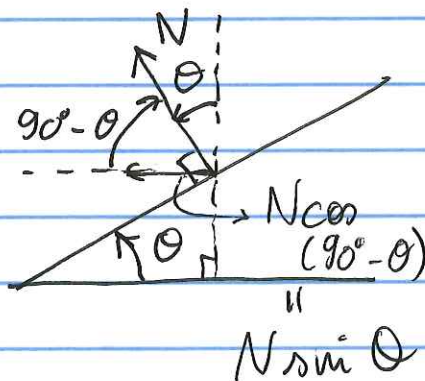 N
θ
90° - θ
θ
N cos
(90° - θ)
=
N sin θ